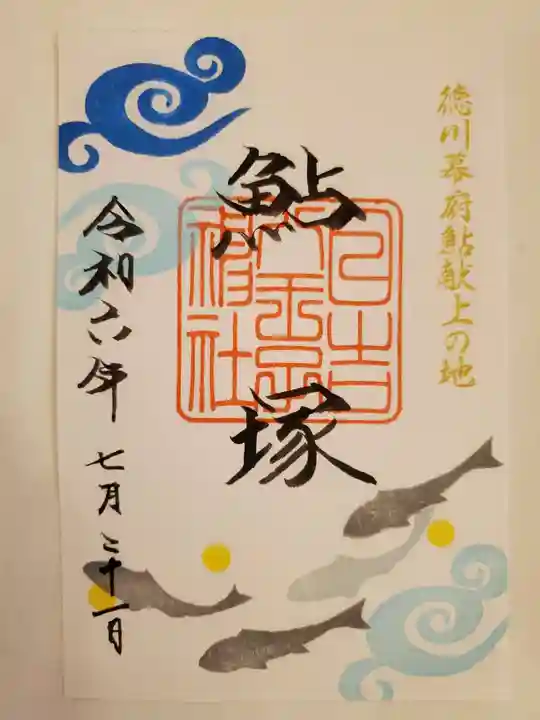 徳川幕府鮎献上の地
鮎塚
日吉
神社
令和六年
七月二十一日